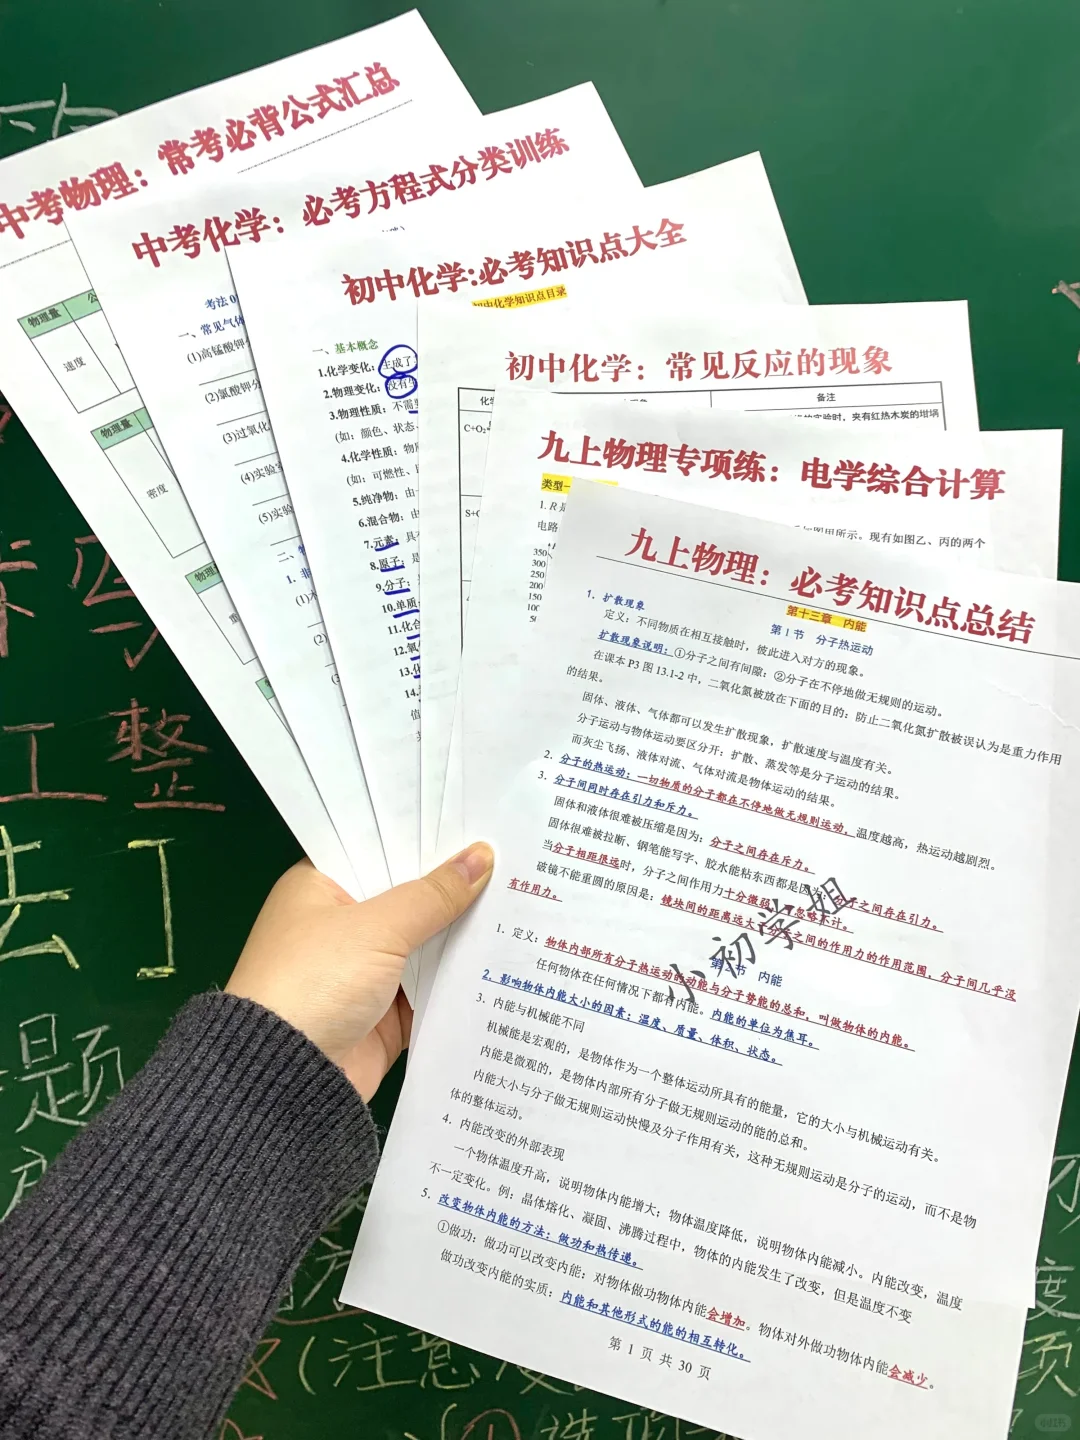 中考物理：常考必背公式汇总
物理量
速度
物理量
密度
中考化学：必考方程式分类训练
考法0
一、常见气体
(1)高锰酸钾
(2)氯酸钾分
(3)过氧化
(4)实验室
(5)实验
初中化学:必考知识点大全
初中化学知识点目录
一、基本概念
1.化学变化：生成了
2.物理变化：没有生
3.物理性质：不需要
(如：颜色、状态、
4.化学性质：物质
(如：可燃性、
5.纯净物：由一
6.混合物：由
7.元素：具有
8.原子：是
9.分子：
10.单质：
11.化合
12.氧
13.化
14.
初中化学：常见反应的现象
备注
的实验时，夹有红热木炭的坩埚
C+O₂
S+O
九上物理专项练：电学综合计算
类型一
1. R
所示。现有如图乙、丙的两个
电路
350
300
250
200
150
100
九上物理：必考知识点总结
第十三章 内能
第 1 节 分子热运动
1. 扩散现象
定义：不同物质在相互接触时，彼此进入对方的现象。
扩散现象说明：①分子之间有间隙；②分子在不停地做无规则的运动。
在课本 P3 图 13.1-2 中，二氧化氮被放在下面的目的：防止二氧化氮扩散被误认为是重力作用
的结果。
固体、液体、气体都可以发生扩散现象，扩散速度与温度有关。
分子运动与物体运动要区分开：扩散、蒸发等是分子运动的结果。
而灰尘飞扬、液体对流、气体对流是物体运动的结果。
2. 分子的热运动：一切物质的分子都在不停地做无规则运动，温度越高，热运动越剧烈。
3. 分子间同时存在引力和斥力。
固体和液体很难被压缩是因为：分子之间存在斥力。
固体很难被拉断、钢笔能写字、胶水能粘东西都是因为：分子之间存在引力。
当分子相距很远时，分子之间作用力十分微弱，可忽略不计。
破镜不能重圆的原因是：镜块间的距离远大于分子之间的作用力的作用范围，分子间几乎没
有作用力。
小初学姐
第2节 内能
1. 定义：物体内部所有分子热运动的动能与分子势能的总和，叫做物体的内能。
任何物体在任何情况下都有内能。内能的单位为焦耳。
2. 影响物体内能大小的因素：温度、质量、体积、状态。
3. 内能与机械能不同
机械能是宏观的，是物体作为一个整体运动所具有的能量，它的大小与机械运动有关。
内能是微观的，是物体内部所有分子做无规则运动的能的总和。
内能大小与分子做无规则运动快慢及分子作用有关，这种无规则运动是分子的运动，而不是物
体的整体运动。
4. 内能改变的外部表现
一个物体温度升高，说明物体内能增大；物体温度降低，说明物体内能减小。内能改变，温度
不一定变化。例：晶体熔化、凝固、沸腾过程中，物体的内能发生了改变，但是温度不变
5. 改变物体内能的方法：做功和热传递。
①做功：做功可以改变内能：对物体做功物体内能会增加。物体对外做功物体内能会减少。
做功改变内能的实质：内能和其他形式的能的相互转化。
第 1 页 共 30 页
整
工
去
题
(注意
选
度
项